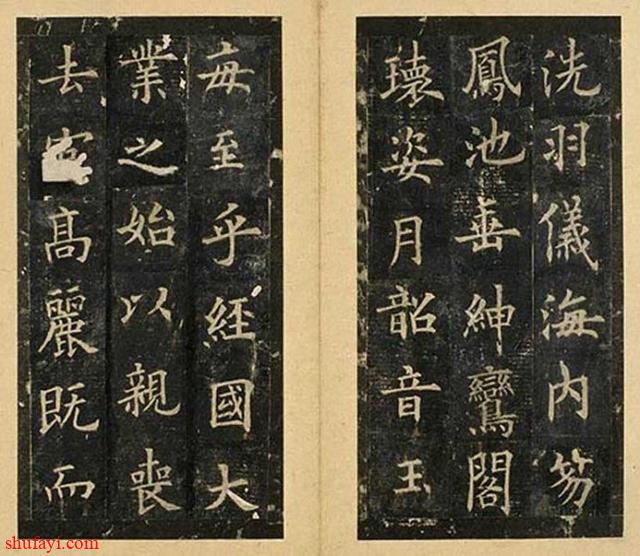 洗羽儀海内笏
鳳池垂紳鸞閣
瓌姿月韶音玉
每至乎經國大
業之始以親喪
去官高麗既而
shufayi.com